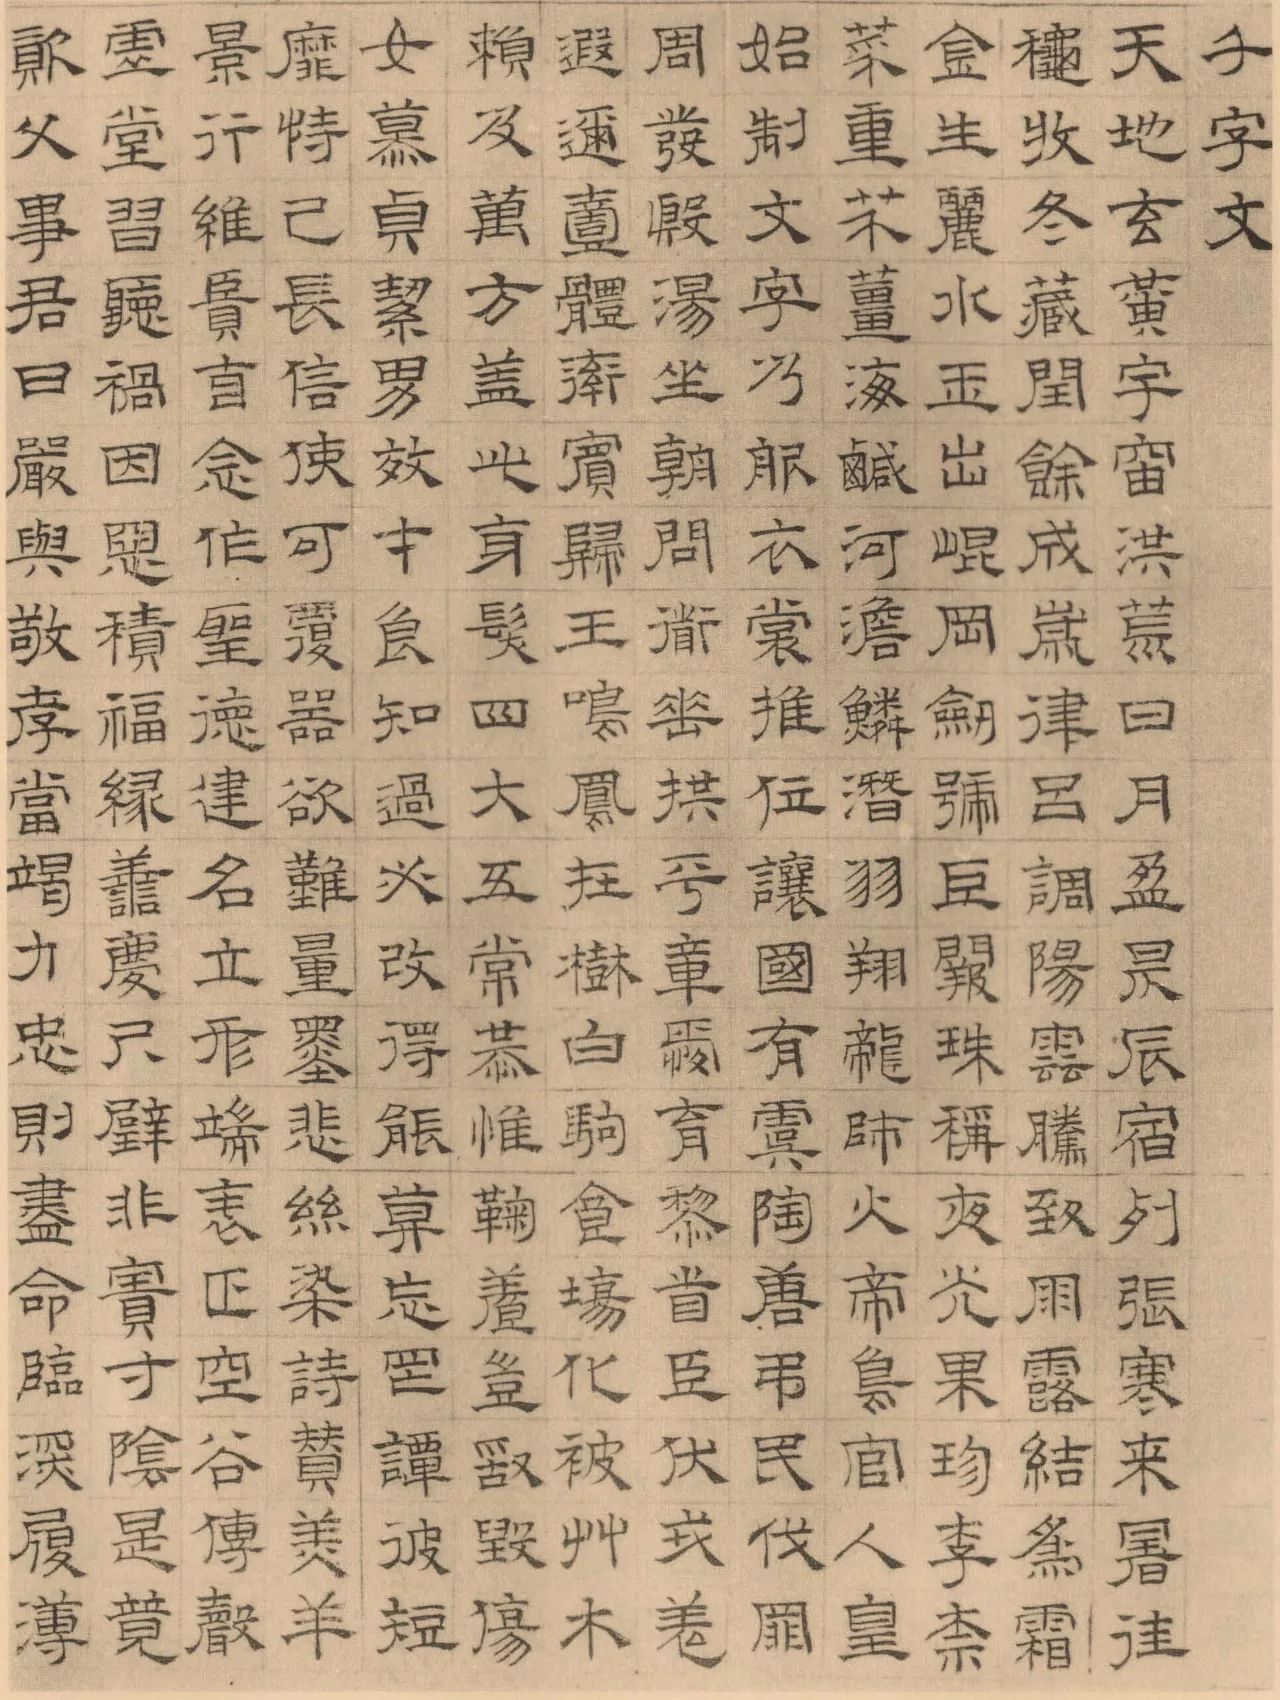 千字文
天地玄黃宇宙洪荒日月盈昃辰宿列張寒来暑往
龝收冬藏閏餘成歲律呂調陽雲騰致雨露結為霜
金生麗水玉出崐岡劒號巨闕珠稱夜光果珍李柰
菜重芥薑海鹹河澹鱗潛羽翔龍師火帝鳥官人皇
始制文字乃服衣裳推位讓國有虞陶唐弔民伐罪
周發殷湯坐朝問道垂拱平章愛育黎首臣伏戎羌
遐邇壹體率賓歸王鳴鳳在樹白駒食場化被艸木
賴及萬方盖此身髮四大五常恭惟鞠養豈敢毀傷
女慕貞絜男效才良知過必改得能莫忘罔譚彼短
靡恃己長信使可覆器欲難量墨悲絲染詩贊羔羊
景行維賢克念作聖德建名立形端表正空谷傳聲
虛堂習聽禍因惡積福緣善慶尺璧非寶寸陰是競
資父事君曰嚴與敬孝當竭力忠則盡命臨深履薄